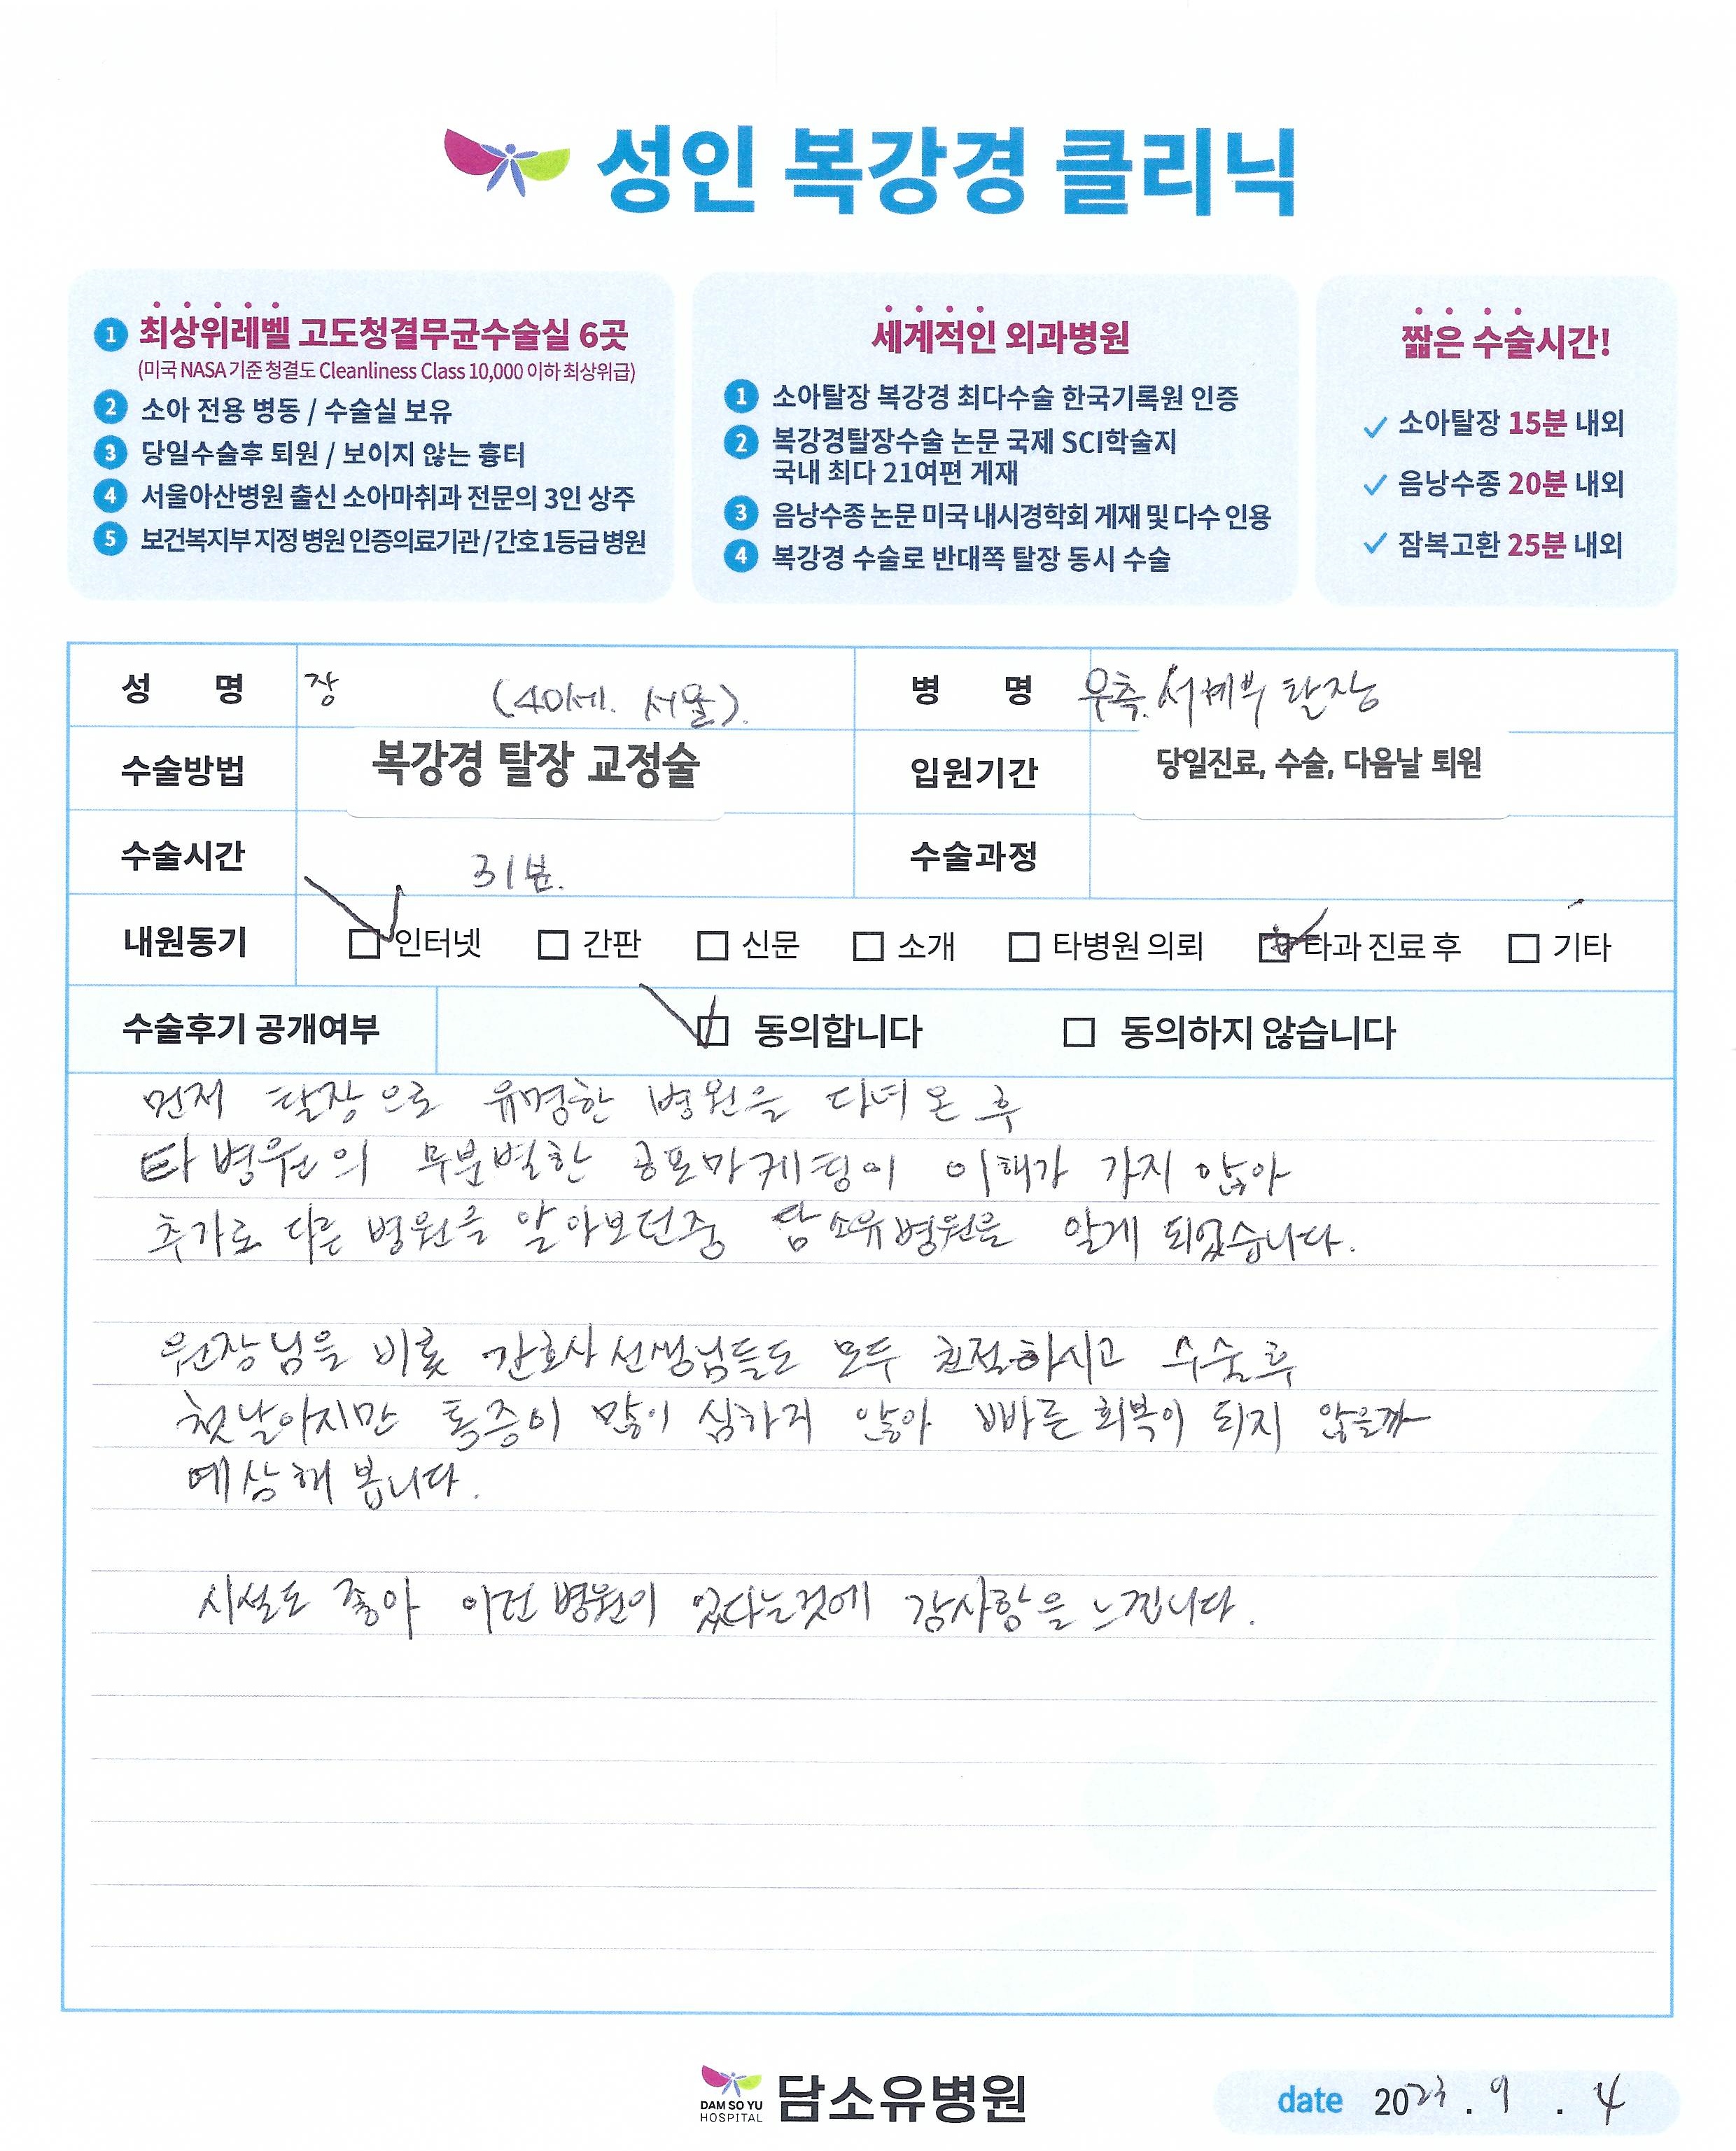 성인 복강경 클리닉
1 최상위레벨 고도청결무균수술실 6곳
(미국 NASA 기준 청결도 Cleanliness Class 10,000 이하 최상위급)
2 소아 전용 병동 / 수술실 보유
3 당일수술후 퇴원 / 보이지 않는 흉터
4 서울아산병원 출신 소아마취과 전문의 3인 상주
5 보건복지부 지정 병원 인증의료기관 / 간호 1등급 병원
세계적인 외과병원
1 소아탈장 복강경 최다수술 한국기록원 인증
2 복강경탈장수술 논문 국제 SCI학술지
국내 최다 21여편 게재
3 음낭수종 논문 미국 내시경학회 게재 및 다수 인용
4 복강경 수술로 반대쪽 탈장 동시 수술
짧은 수술시간!
소아탈장 15분 내외
음낭수종 20분 내외
잠복고환 25분 내외
성 명 장 (40세. 서울). 병 명 우측 서혜부 탈장
수술방법 복강경 탈장 교정술 입원기간 당일진료, 수술, 다음날 퇴원
수술시간 31분. 수술과정
내원동기 인터넷 간판 신문 소개 타병원 의뢰 타과 진료 후 기타
수술후기 공개여부 동의합니다 동의하지 않습니다
먼저 탈장으로 유명한 병원을 다녀온 후
타병원의 무분별한 공포마케팅이 이해가 가지 않아
추가로 다른 병원을 알아보던중 담소유병원을 알게 되었습니다.
원장님을 비롯 간호사 선생님들도 모두 친절하시고 수술후
첫날이지만 통증이 많이 심하지 않아 빠른 회복이 되지 않을까
예상해 봅니다.
시설도 좋아 이런 병원이 있다는것에 감사함을 느낍니다.
DAM SO YU
HOSPITAL
담소유병원
date 2023 . 9 . 4